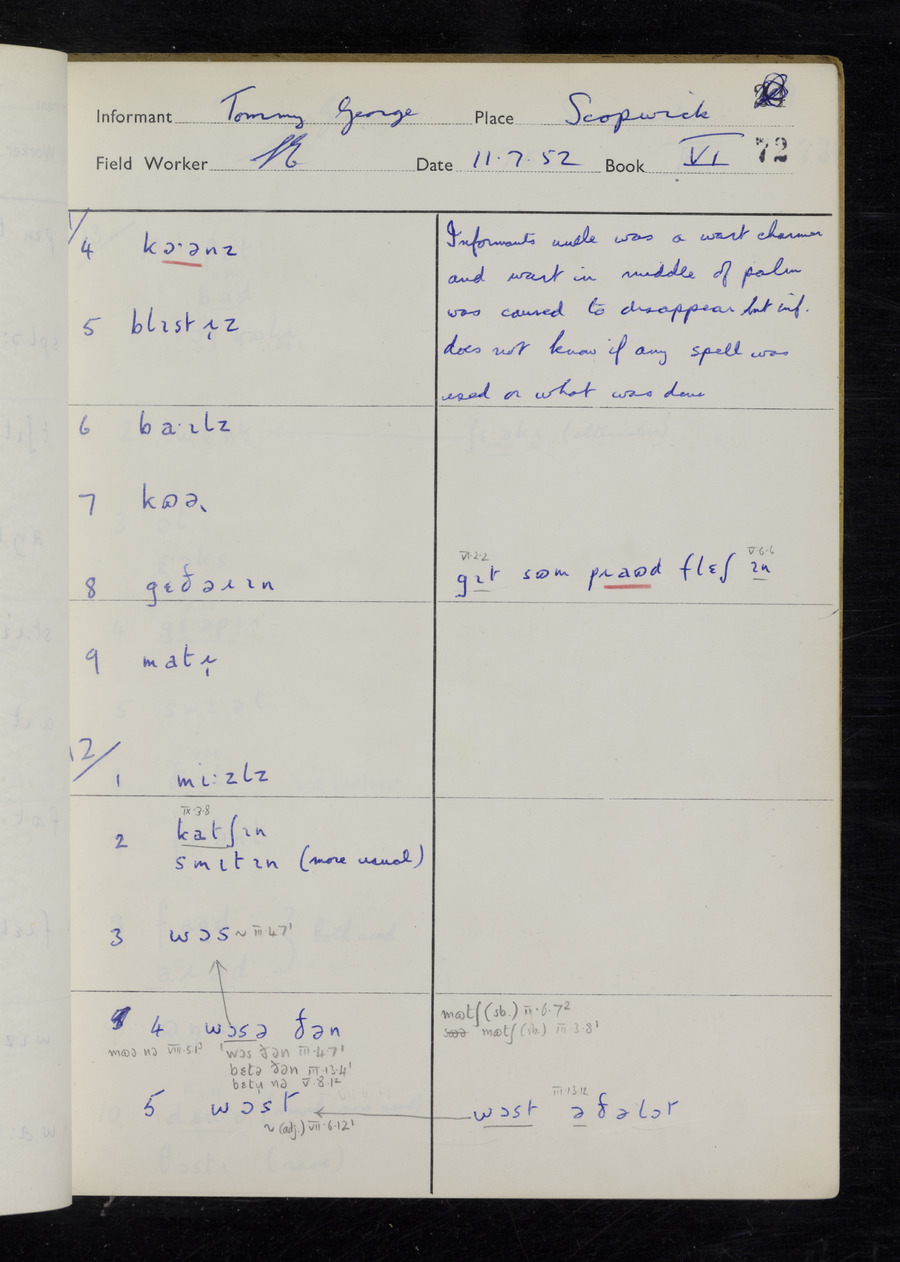 Informant Tommy George Place Scopwick
Field Worker Date 11.7.52 Book VI 72
4 kə·ənz
Informants uncle was a wart charmer
and wart in middle of palm
5 blɪstɪ̣z
was caused to disappear but inf.
does not know if any spell was
used or what was done
6 ba·ɪlz
7 kɷə
VI·2·2 V·6·6
8 gɛðəɹɪn gɪt sɷm pɹaɷd flɛʃ ɪn
9 matɪ̣
12/
1 mi:zlz
IX·3·8
2 katʃɪn
smɪtɪn (more usual)
3 wɔs ~ III·4·7¹
4 wɔsə ðən matʃ (sb.) II·6·7²
matʃ (sb.) III·3·8¹
mɷə nə VIII·5·1³ wɔs ðən III·4·7¹
bɛtə ðən III·13·4¹
bɛtɪ̣ nə V·8·12
III·13·12
5 wɔst wɔst ə ðə lɔt
~ (adj.) VII·6·12¹